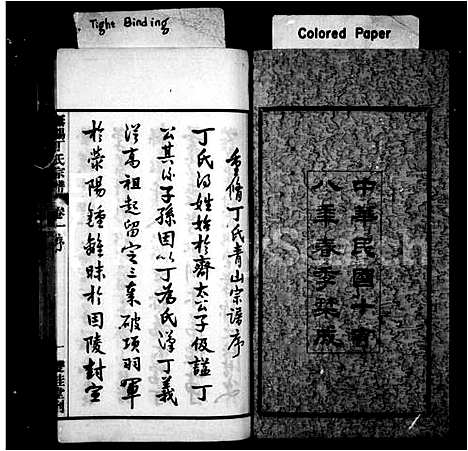 Tight Binding
Colored Paper
中華民國十有
八年春季成
重脩丁氏青山宗譜序
丁氏得姓始於齊太公子伋諡丁
公其子孫因以丁為氏漢丁義
從高祖起留定三秦破項羽軍
於滎陽鍾離昧於固陵封宣
陽丁氏宗譜 卷一 序 一 雙桂堂